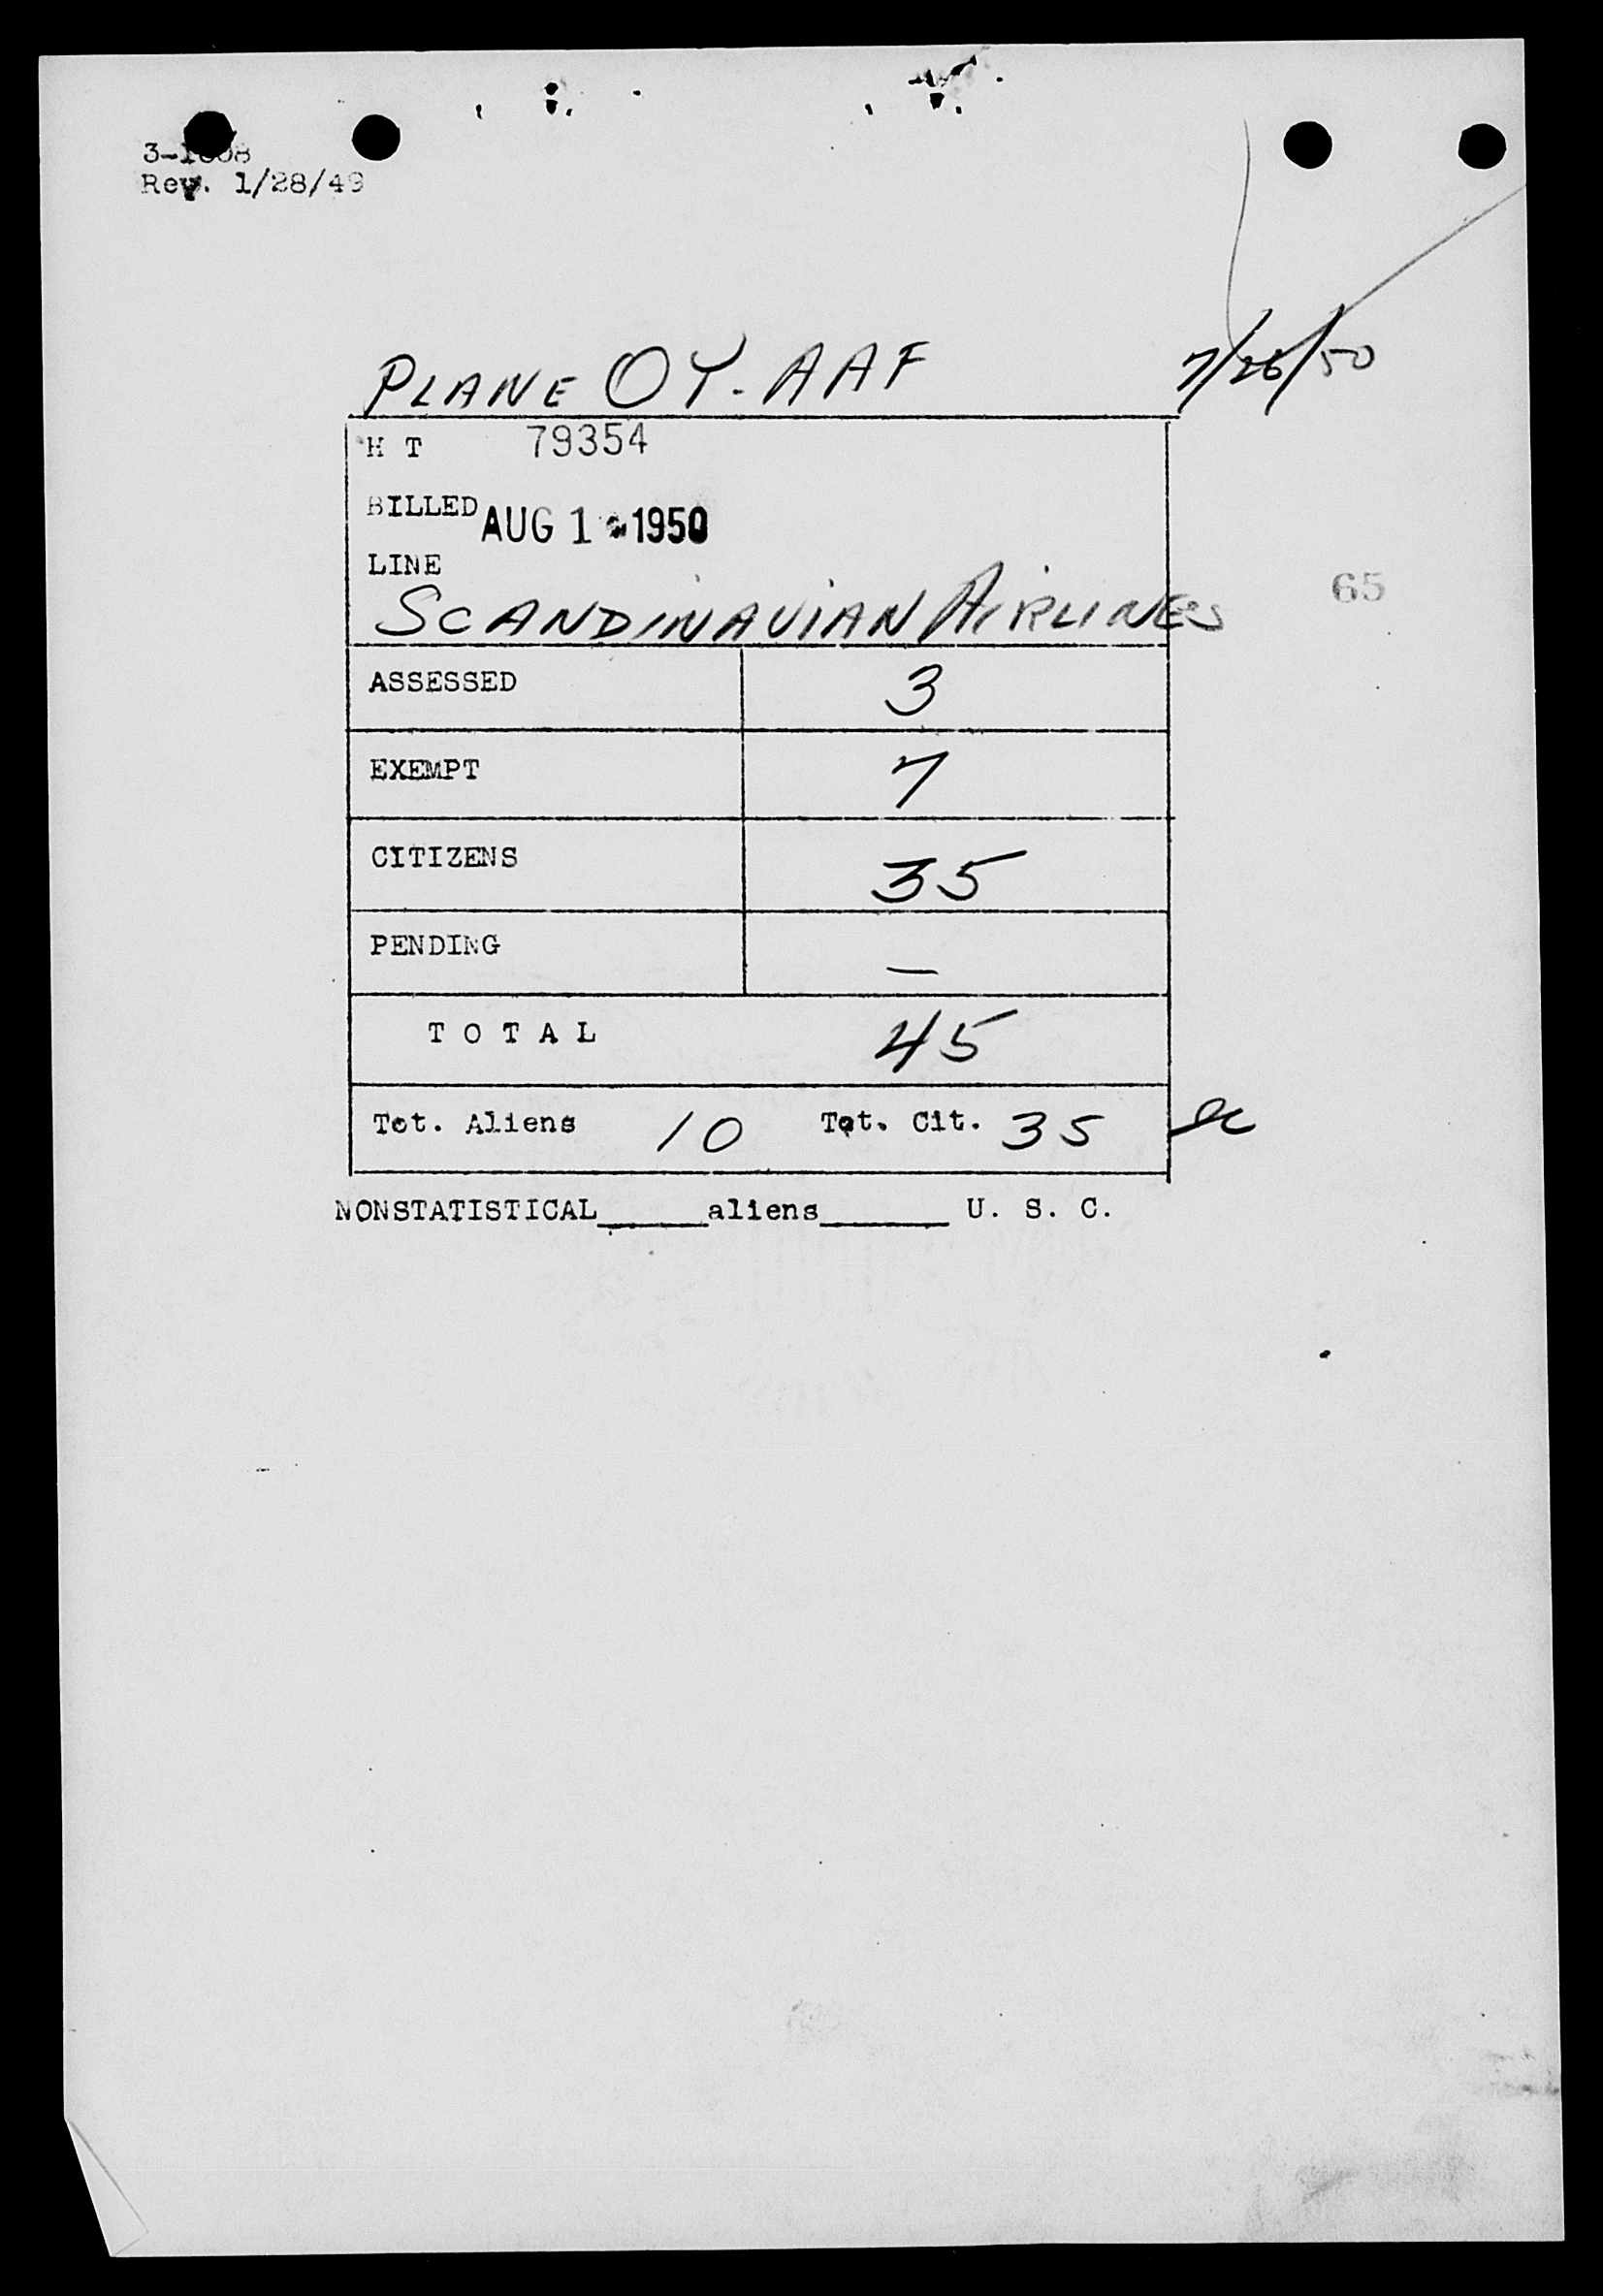 Rev. 1/28/49
PLANE OY-AAF 7/26/50
H T 79354
BILLED AUG 1 1950
LINE
SCANDINAVIAN AIRLINES
65
ASSESSED 3
EXEMPT 7
CITIZENS 35
PENDING —
T O T A L 45
Tot. Aliens 10 Tot. Cit. 35
NONSTATISTICAL______aliens_______ U. S. C.